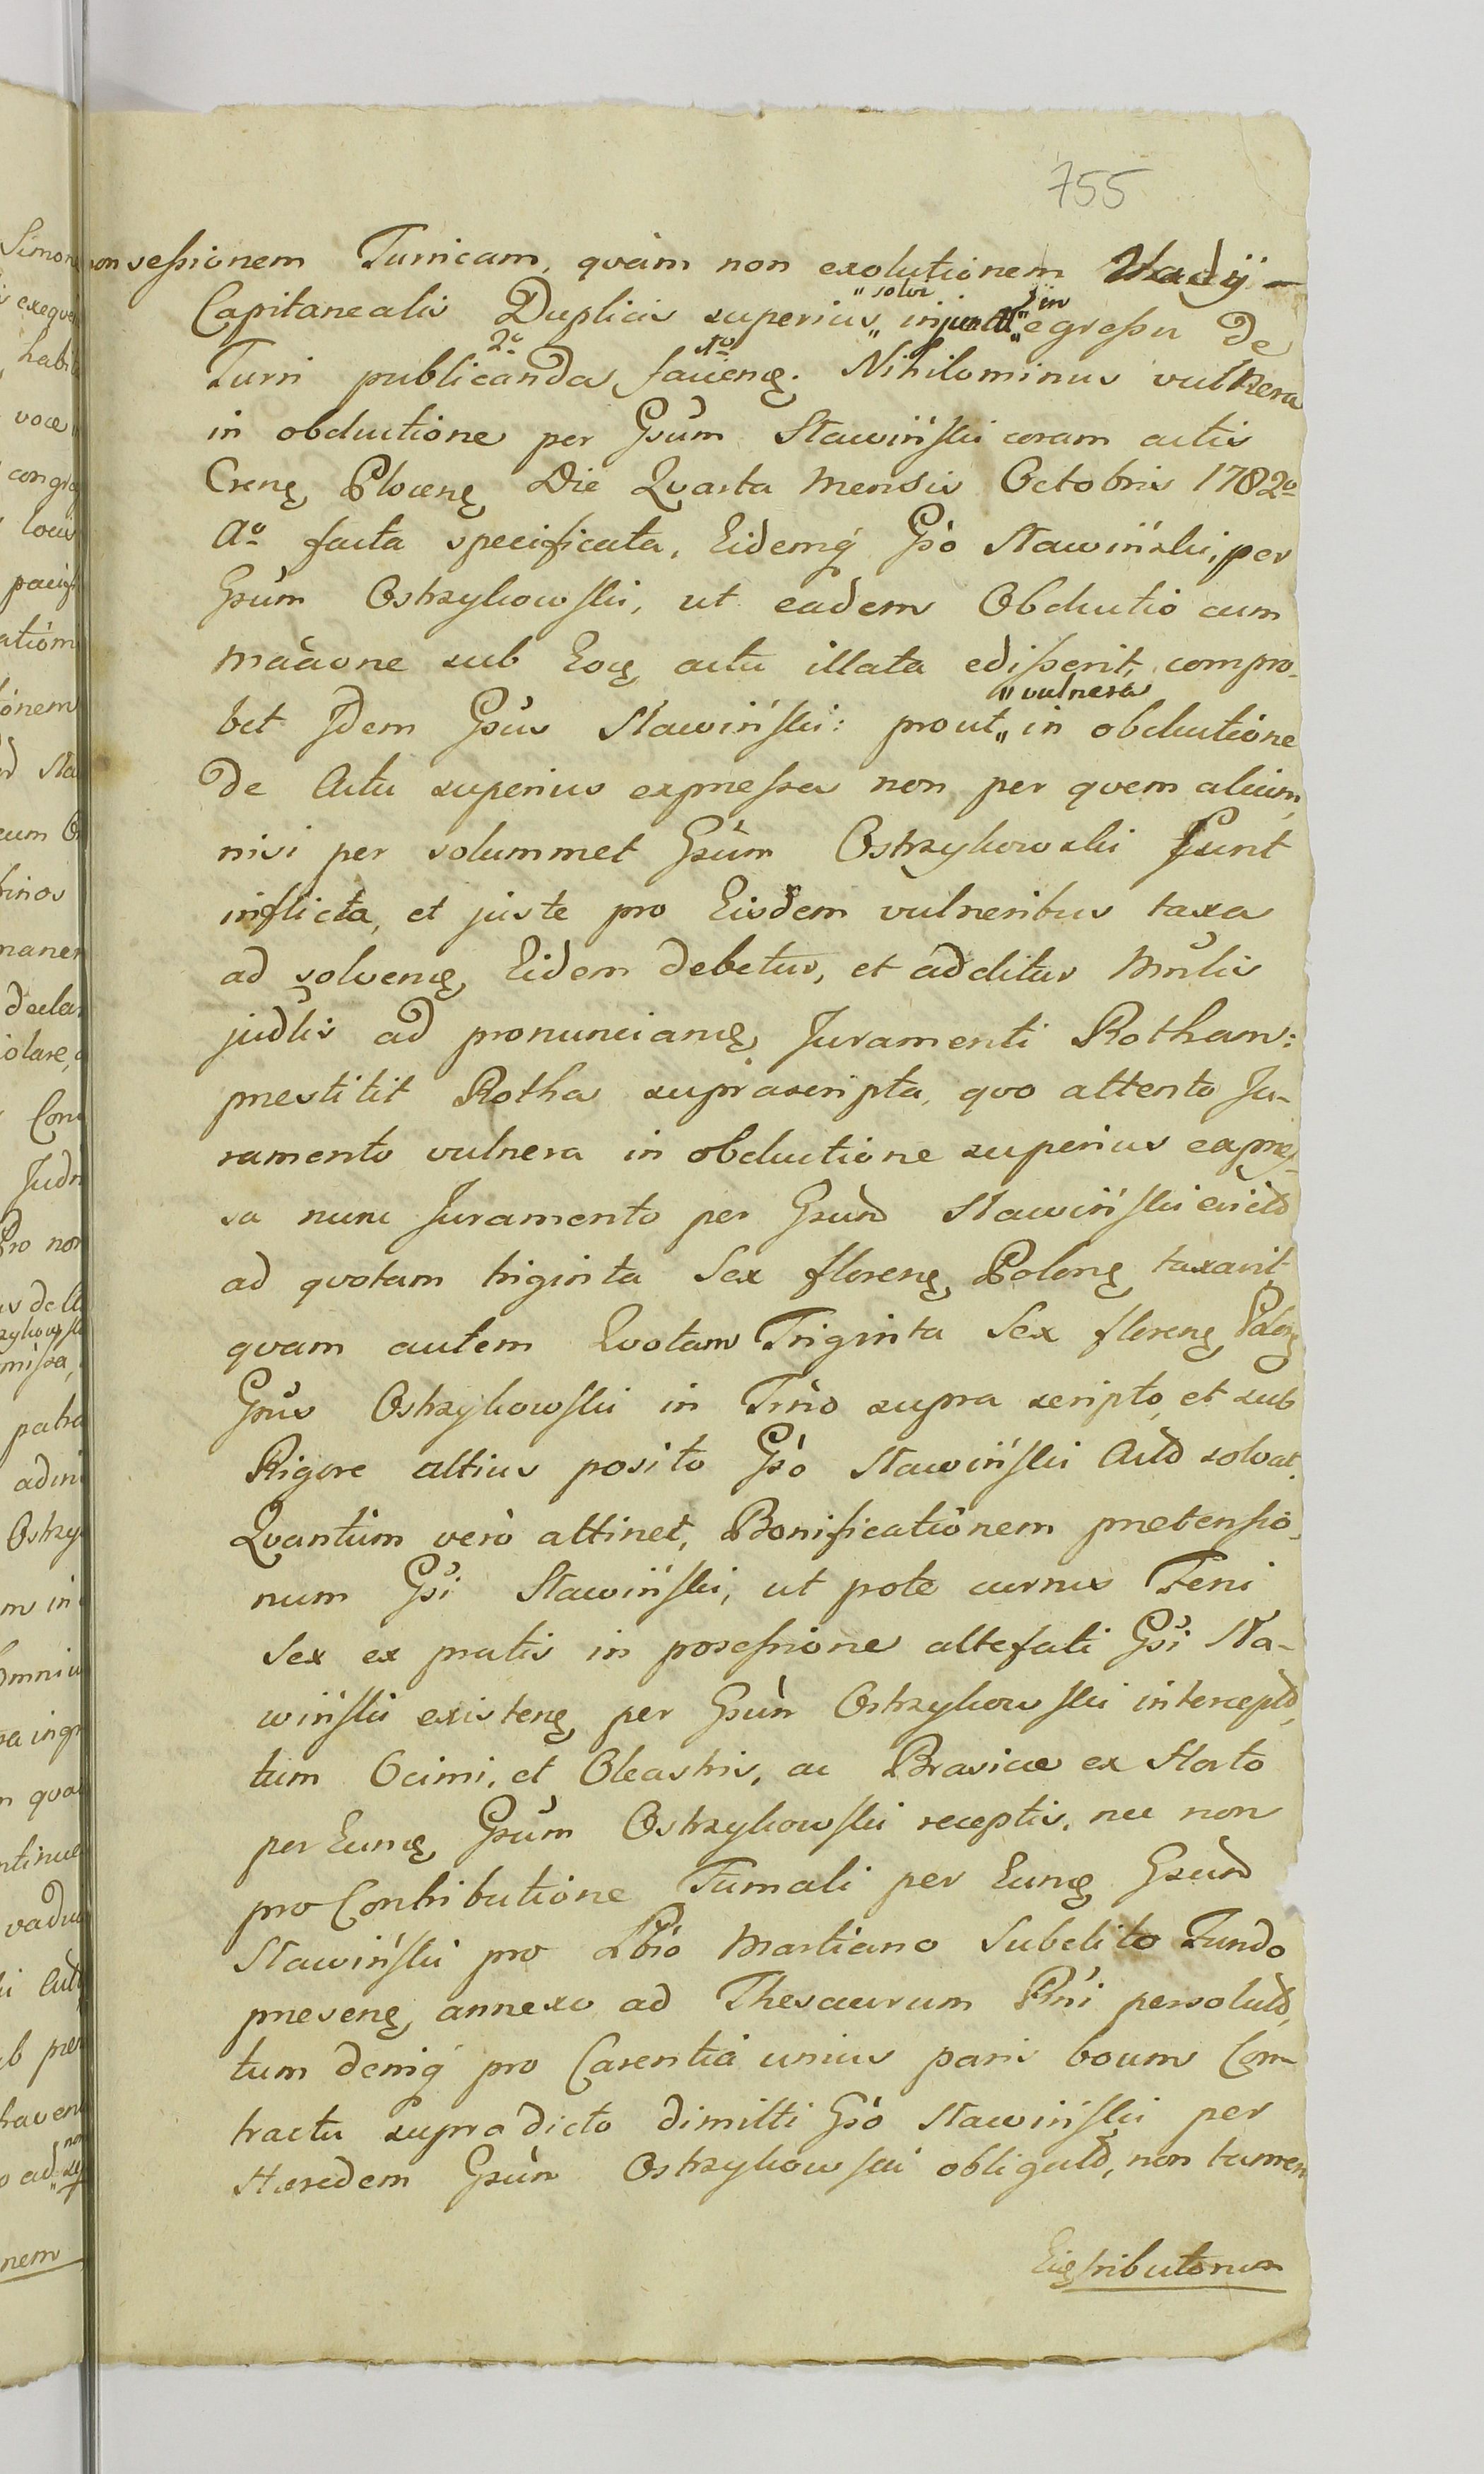 755
non sessionem Turricam, quam non exolutionem Vadÿ –
Capitanealis Duplicis superius „ injuncti „ egressu de
„ solvi „ in
Turri publicanda facien̄ę. Nihilominus vulnera
2º 1mo
in obductione per Gsum Stawiński coram actis
Cren̄ę Plocen̄ę Die Quarta Mensis Octobris 1782º
Aº facta specificata, Eidemq́ Gso Stawiński, per
Gsum Ostrzykowski, ut eadem Obductio cum
sub actu illata edisserit, compro-
bet Idem Gsus Stawiński: prout „ in obductione
„ vulnera
de Actu superius expressa non per quem alium,
nisi per solummet Gsum Ostrzykowski sunt
inflicta, et juste pro Eisdem vulneribus taxa
ad solvenę Eidem debetur, et additur Mnlis
judlis ad pronuncianę Juramenti Rotham:
prestitit Rotha suprascripta, quo attento Ju-
ramento vulnera in obductione superius expres-
sa nunc Juramento per Gsum Stawiński
ad quotam triginta Sex florenę Polonę taxavit
quam autem Quotam Triginta Sex florenę Polonę
Gsus Ostrzykowski in Trno supra scripto, et sub
Rigore altius posito Gso Stawiński solvat.
Quantum vero attinet, Bonificationem pretensio-
num Gsi Stawiński, ut pote currus Feni
Sex ex pratis in possessione altefati Gsi Sta-
wiński existenę per Gsum Ostrzykowski intercept,
tum Ocimi, et Oleastris, ac Brasicæ ex Horto
per Eunę Gsum Ostrzykowski receptis, nec non
pro Contributione Fumali per Eunę Gsum
Stawiński pro Martiano Subdito Fundo
presenę annexo ad Thesaurum persolut,
tum deniq́ pro Carentia unius paris boum Con-
tractu supradicto dimitti Gso Stawiński per
Hæredem Gsum Ostrzykowski obligat, non tamen